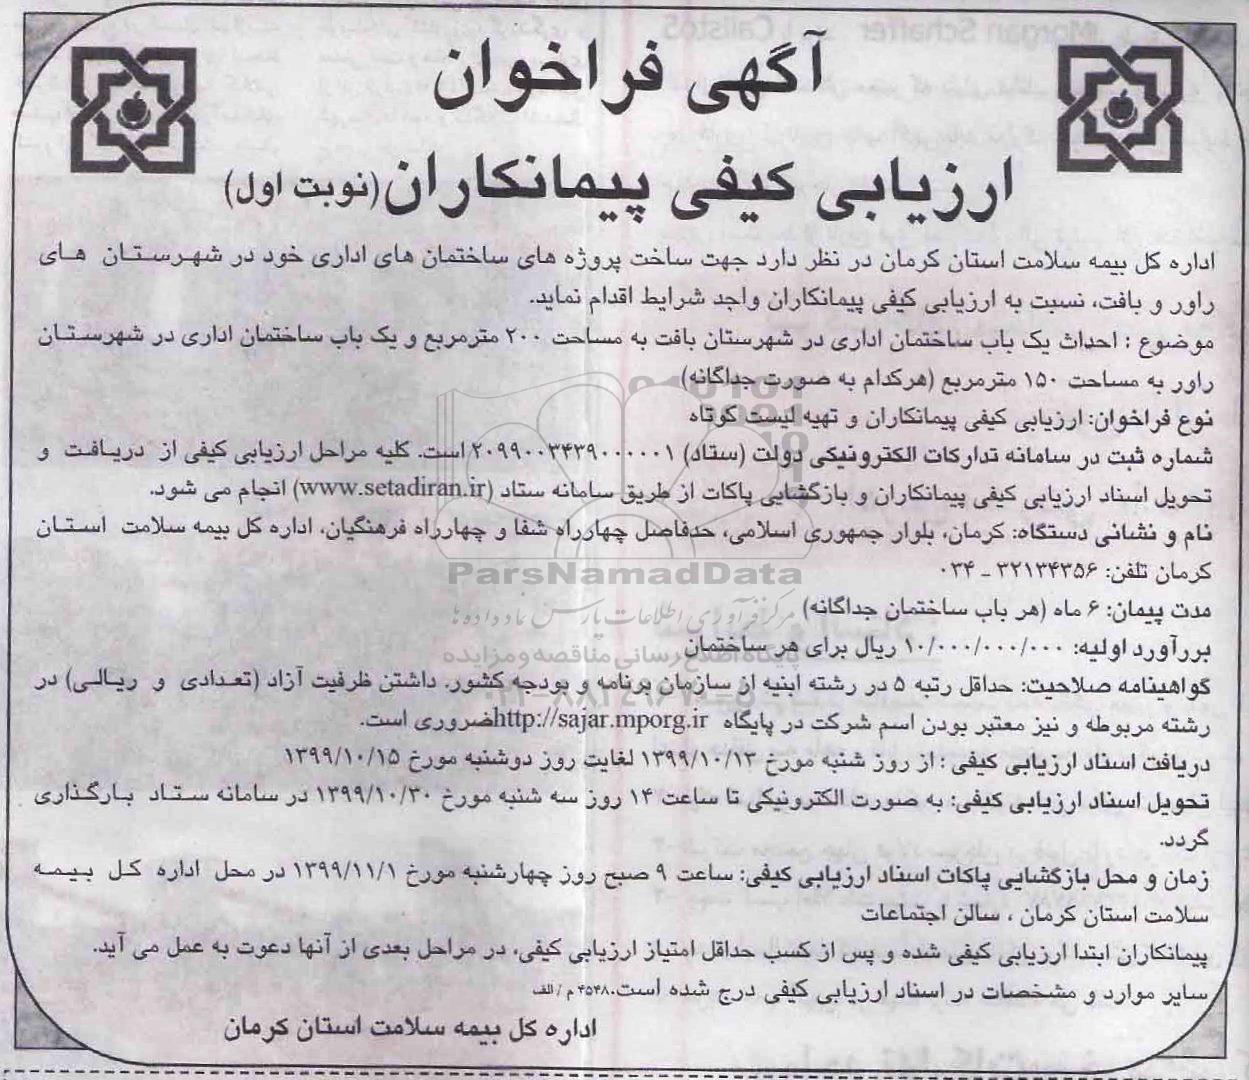 آگهی فراخوان
ارزیابی کیفی پیمانکاران (نوبت اول)
اداره کل بیمه سلامت استان کرمان در نظر دارد جهت ساخت پروژه های ساختمان های اداری خود در شهرستان های
راور و بافت، نسبت به ارزیابی کیفی پیمانکاران واجد شرایط اقدام نماید.
موضوع : احداث یک باب ساختمان اداری در شهرستان بافت به مساحت ۲۰۰ مترمربع و یک باب ساختمان اداری در شهرستان
راور به مساحت ۱۵۰ مترمربع (هرکدام به صورت جداگانه)
نوع فراخوان: ارزیابی کیفی پیمانکاران و تهیه لیست کوتاه
شماره ثبت در سامانه تدارکات الکترونیکی دولت (ستاد) ۲۰۹۹۰۰۳۴۳۹۰۰۰۰۰۱ است. کلیه مراحل ارزیابی کیفی از دریافت و
تحویل اسناد ارزیابی کیفی پیمانکاران و بازگشایی پاکات از طریق سامانه ستاد (www.setadiran.ir) انجام می شود.
نام و نشانی دستگاه: کرمان، بلوار جمهوری اسلامی، حدفاصل چهارراه شفا و چهارراه فرهنگیان، اداره کل بیمه سلامت استان
کرمان تلفن: ۳۲۱۳۴۳۵۶ ـ ۰۳۴
ParsNamadData
مدت پیمان: ۶ ماه (هر باب ساختمان جداگانه)
مرکز فرآوری اطلاعات پارس نماد داده ها
برآورد اولیه: ۱۰/۰۰۰/۰۰۰/۰۰۰ ریال برای هر ساختمان
پایگاه اطلاع رسانی مناقصه و مزایده
گواهینامه صلاحیت: حداقل رتبه ۵ در رشته ابنیه از سازمان برنامه و بودجه کشور. داشتن ظرفیت آزاد (تعدادی و ریالی) در
رشته مربوطه و نیز معتبر بودن اسم شرکت در پایگاه http://sajar.mporg.ir ضروری است.
دریافت اسناد ارزیابی کیفی : از روز شنبه مورخ ۱۳۹۹/۱۰/۱۳ لغایت روز دوشنبه مورخ ۱۳۹۹/۱۰/۱۵
تحویل اسناد ارزیابی کیفی: به صورت الکترونیکی تا ساعت ۱۴ روز سه شنبه مورخ ۱۳۹۹/۱۰/۳۰ در سامانه ستاد بارگذاری
گردد.
زمان و محل بازگشایی پاکات اسناد ارزیابی کیفی: ساعت ۹ صبح روز چهارشنبه مورخ ۱۳۹۹/۱۱/۱ در محل اداره کل بیمه
سلامت استان کرمان ، سالن اجتماعات
پیمانکاران ابتدا ارزیابی کیفی شده و پس از کسب حداقل امتیاز ارزیابی کیفی، در مراحل بعدی از آنها دعوت به عمل می آید.
سایر موارد و مشخصات در اسناد ارزیابی کیفی درج شده است. ۴۵۴۸ م / الف
اداره کل بیمه سلامت استان کرمان